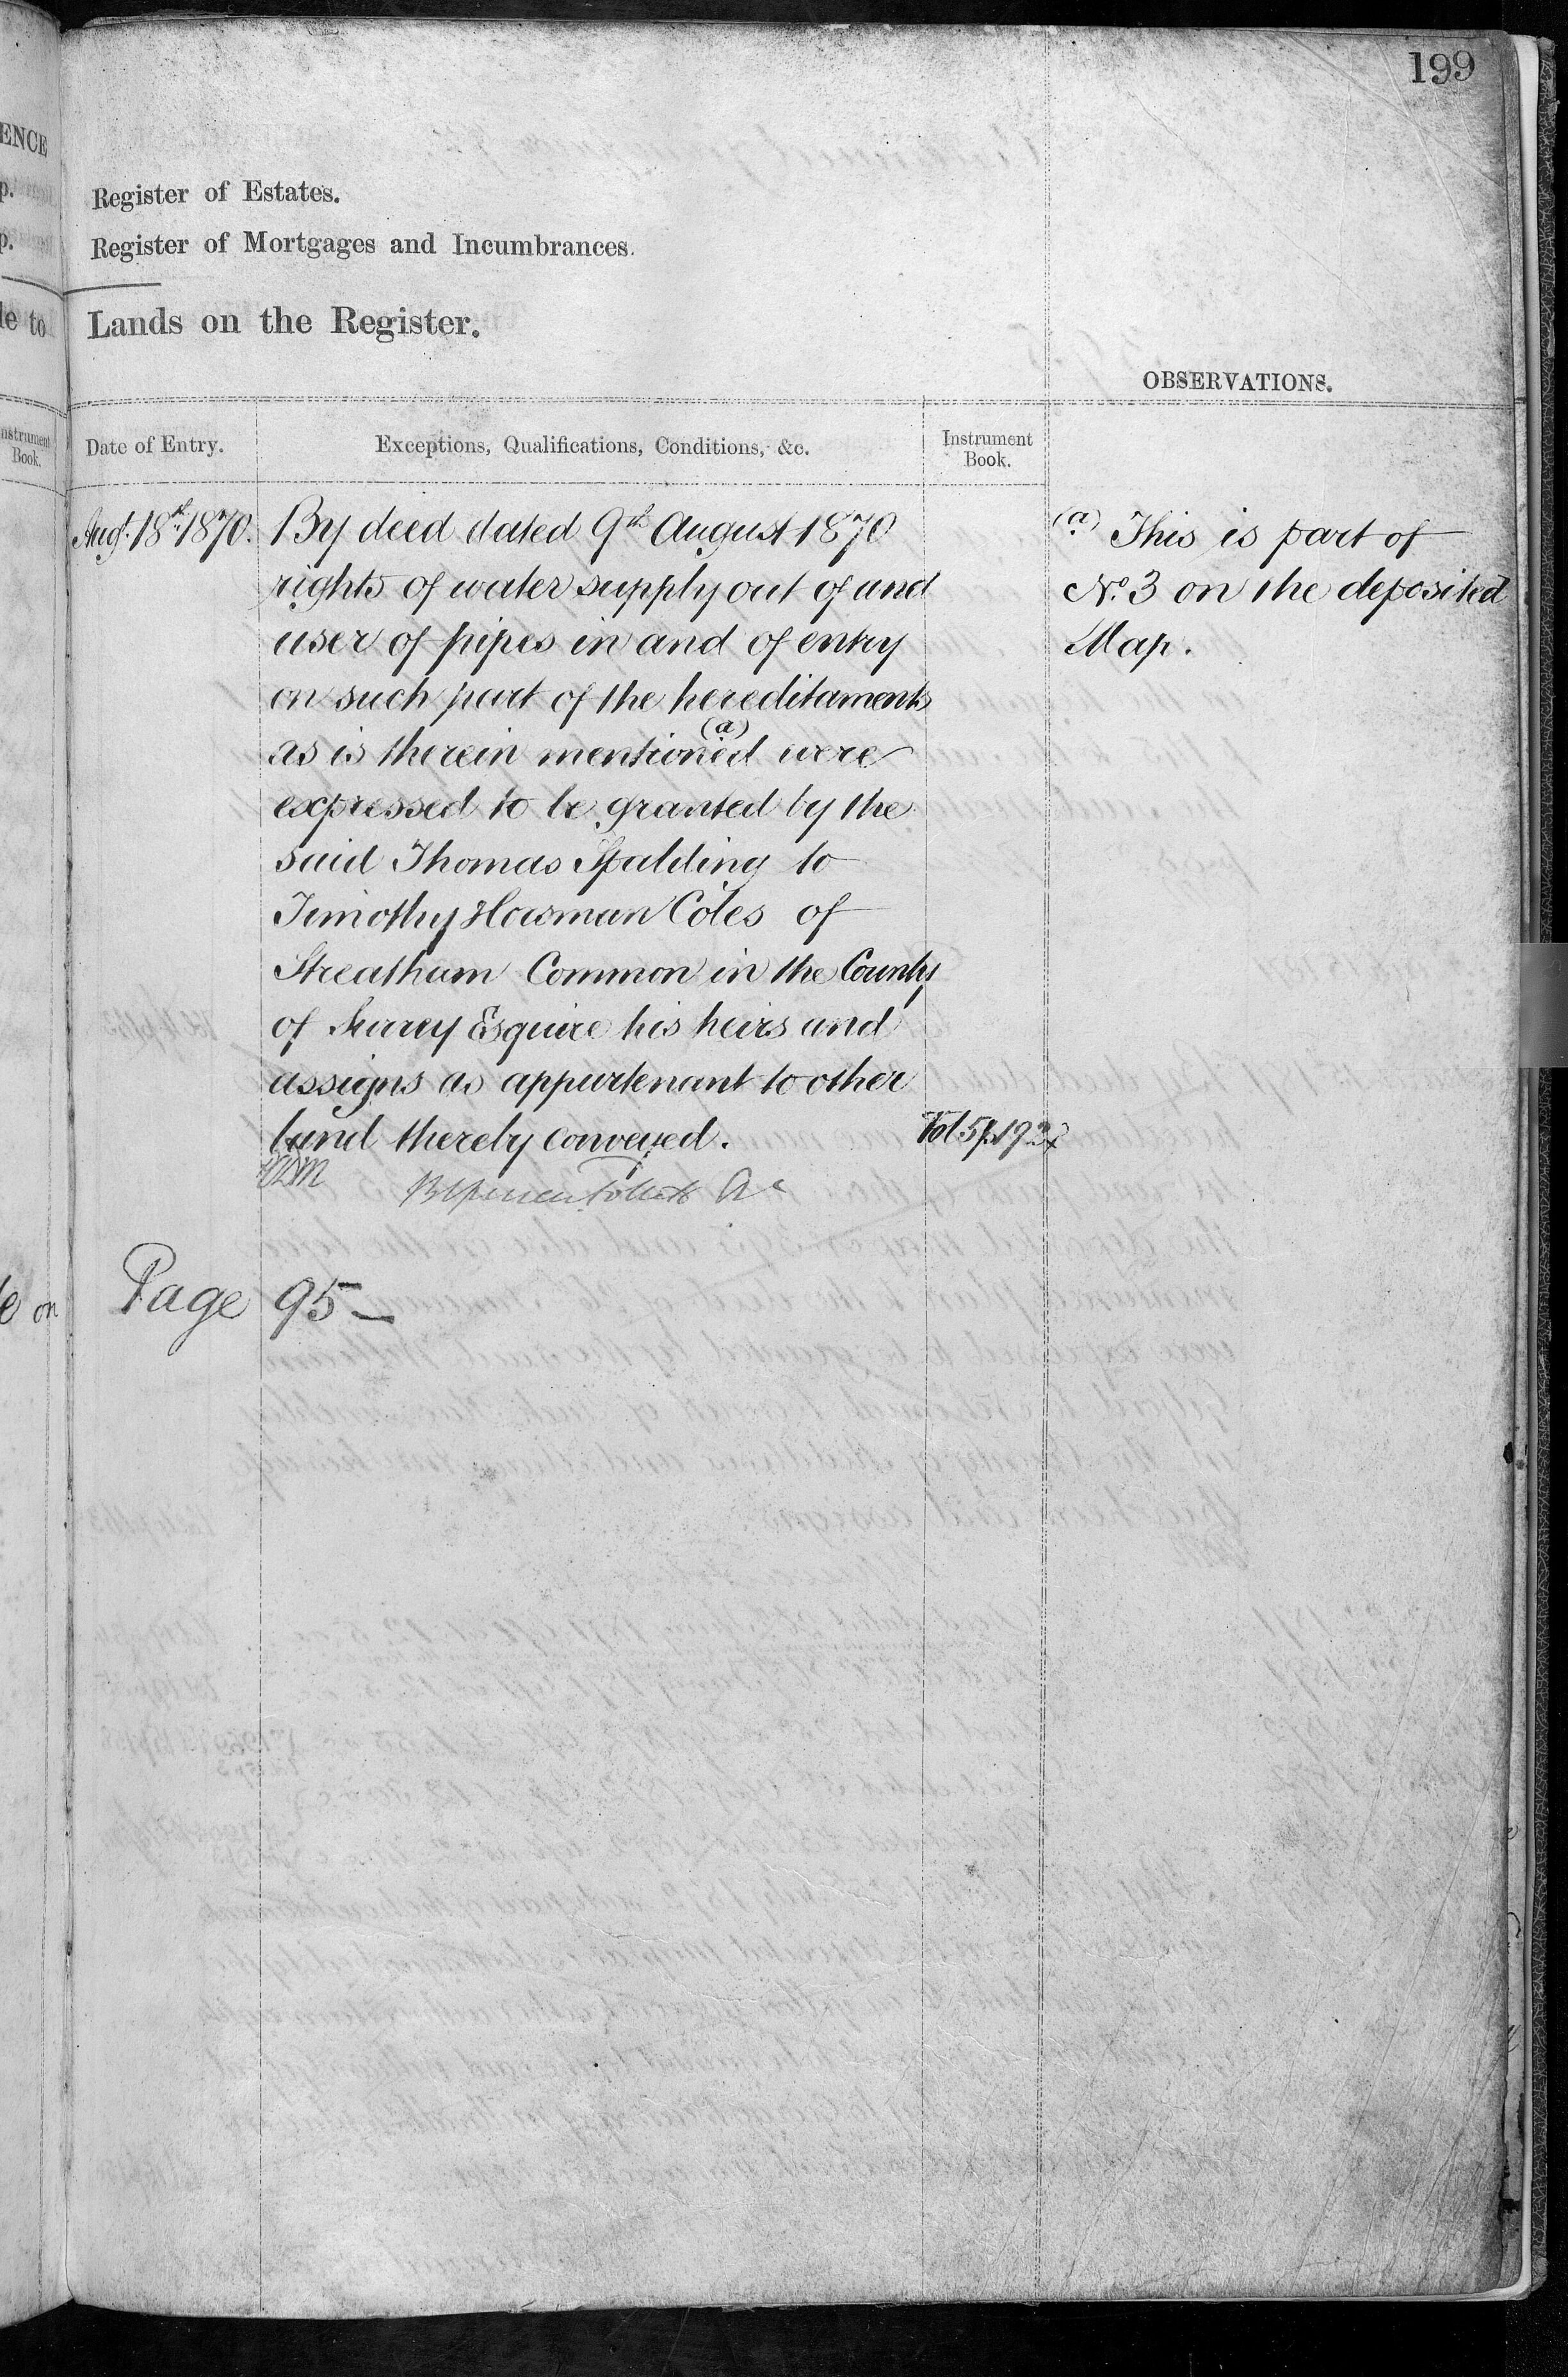 199
ENCE
p.
p.
Register of Estates.
Register of Mortgages and Incumbrances.
le to
Lands on the Register.
OBSERVATIONS.
Instrument Book.
Date of Entry.
Exceptions, Qualifications, Conditions, &c.
Instrument Book.
Augt. 18th 1870.
By deed dated 9th August 1870
rights of water supply out of and
user of pipes in and of entry
on such part of the hereditaments
as is therein mentioned (a) were
expressed to be granted by the
said Thomas Spalding to
Timothy Horsman Coles of
Streatham Common in the County
of Surrey Esquire his heirs and
assigns as appurtenant to other
land thereby conveyed.
Vol. 5 p. 192
(a) This is part of
No. 3 on the deposited
Map.
on
Page 95 —